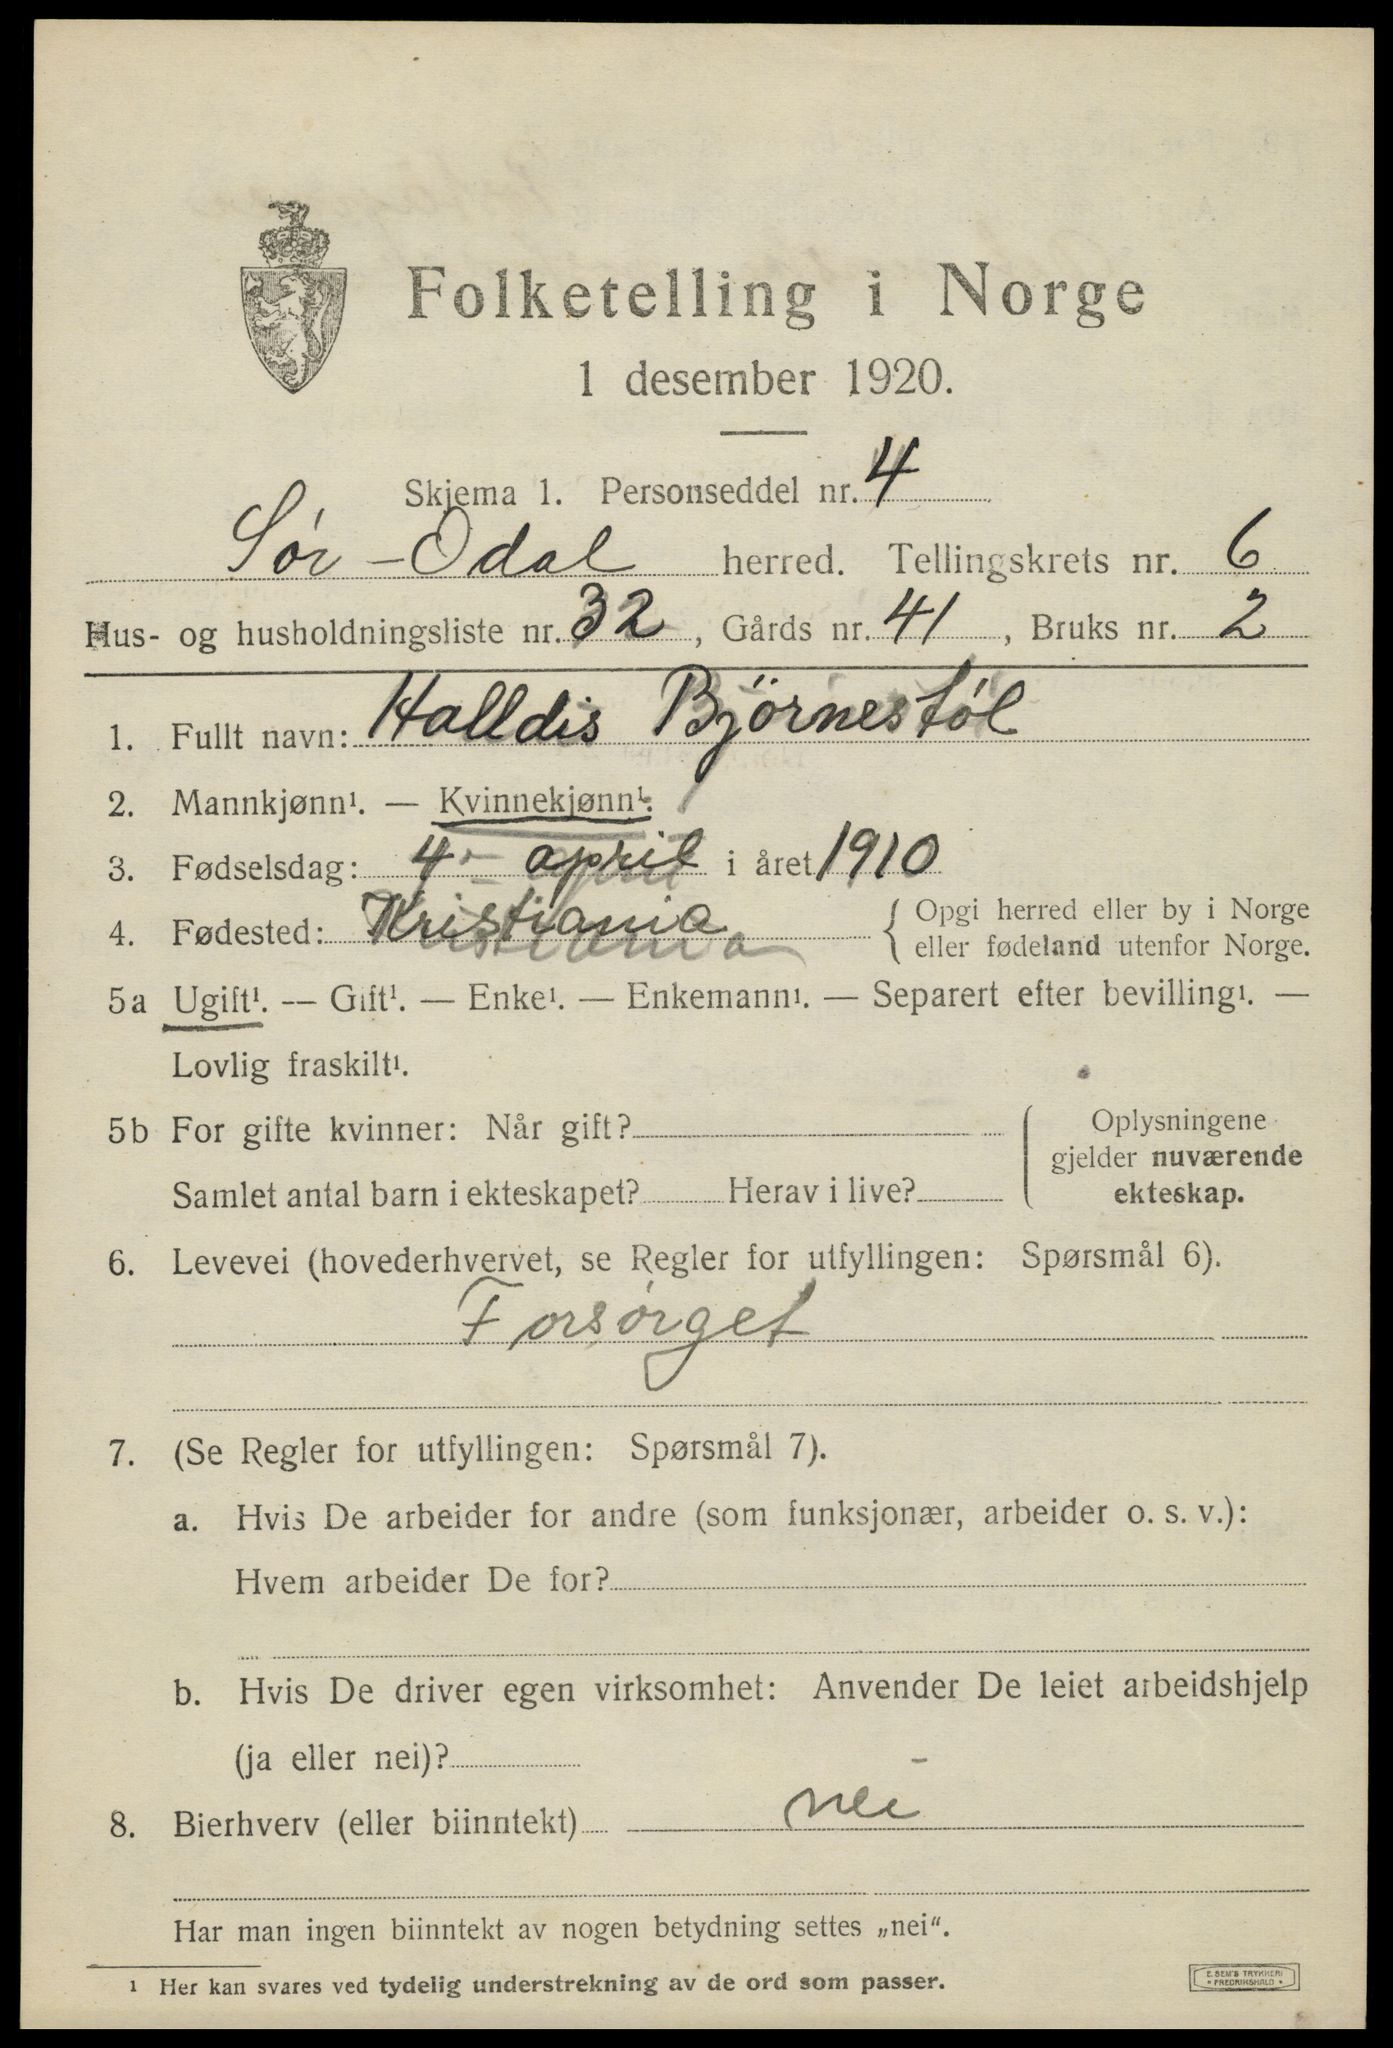 Folketelling i Norge
1 desember 1920.
Skjema 1. Personseddel nr. 4
Sør-Odal herred. Tellingskrets nr. 6
Hus- og husholdningsliste nr. 32, Gårds nr. 41, Bruks nr. 2
1. Fullt navn: Halldis Björnestøl
2. Mannkjønn¹. — Kvinnekjønn¹.
3. Fødselsdag: 4 - april i året 1910
4. Fødested: Kristiania { Opgi herred eller by i Norge
eller fødeland utenfor Norge.
5a Ugift¹. — Gift¹. — Enke¹. — Enkemann¹. — Separert efter bevilling¹. —
Lovlig fraskilt¹.
5b For gifte kvinner: Når gift? { Oplysningene
gjelder nuværende
Samlet antal barn i ekteskapet? Herav i live? ekteskap.
6. Levevei (hovederhvervet, se Regler for utfyllingen: Spørsmål 6).
Forsørget
7. (Se Regler for utfyllingen: Spørsmål 7).
a. Hvis De arbeider for andre (som funksjonær, arbeider o. s. v.):
Hvem arbeider De for?
b. Hvis De driver egen virksomhet: Anvender De leiet arbeidshjelp
(ja eller nei)?
8. Bierhverv (eller biinntekt) nei
Har man ingen biinntekt av nogen betydning settes „nei“.
¹ Her kan svares ved tydelig understrekning av de ord som passer.
E. SEM'S TRYKKERI
* FREDRIKSHALD *